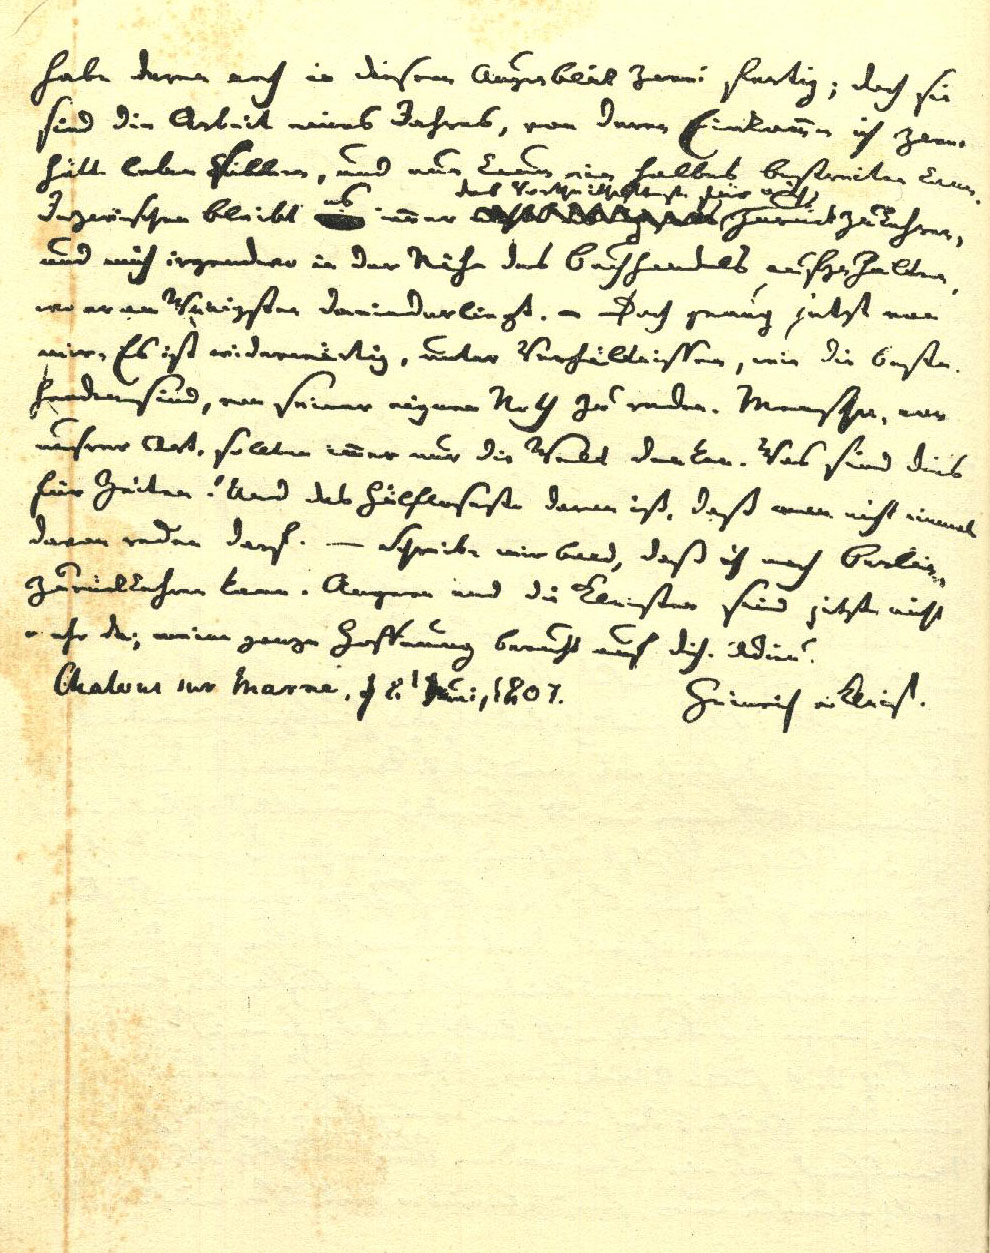 habe deren auch in diesem Augenblick zwei fertig; doch sie
sind die Arbeit eines Jahres, von deren Einkommen ich zwei
hätte leben sollen, und nun kaum ein halbes bestreiten kann.
Inzwischen bleibt es immer das Vortheilhafteste für mich, zurückzukehren,
und mich irgendwo in der Nähe des Buchhandels aufzuhalten,
wo er am Wenigsten daniederliegt. – Doch genug jetzt von
mir. Es ist widerwärtig, unter Verhältnissen, wie die beste-
henden sind, von seiner eignen Noth zu reden. Menschen, von
unsrer Art, sollten immer nur die Welt denken. Was sind dies
für Zeiten! Und das Hülfloseste daran ist, daß man nicht einmal
davon reden darf. — Schreibe mir bald, daß ich nach Berlin
zurückkehren kann. Angern und die Kleisten sind jetzt nicht
mehr da; meine ganze Hoffnung beruht auf dich. Adieu.
Chalons sur Marne, d 8t Juni, 1807. Heinrich v Kleist.